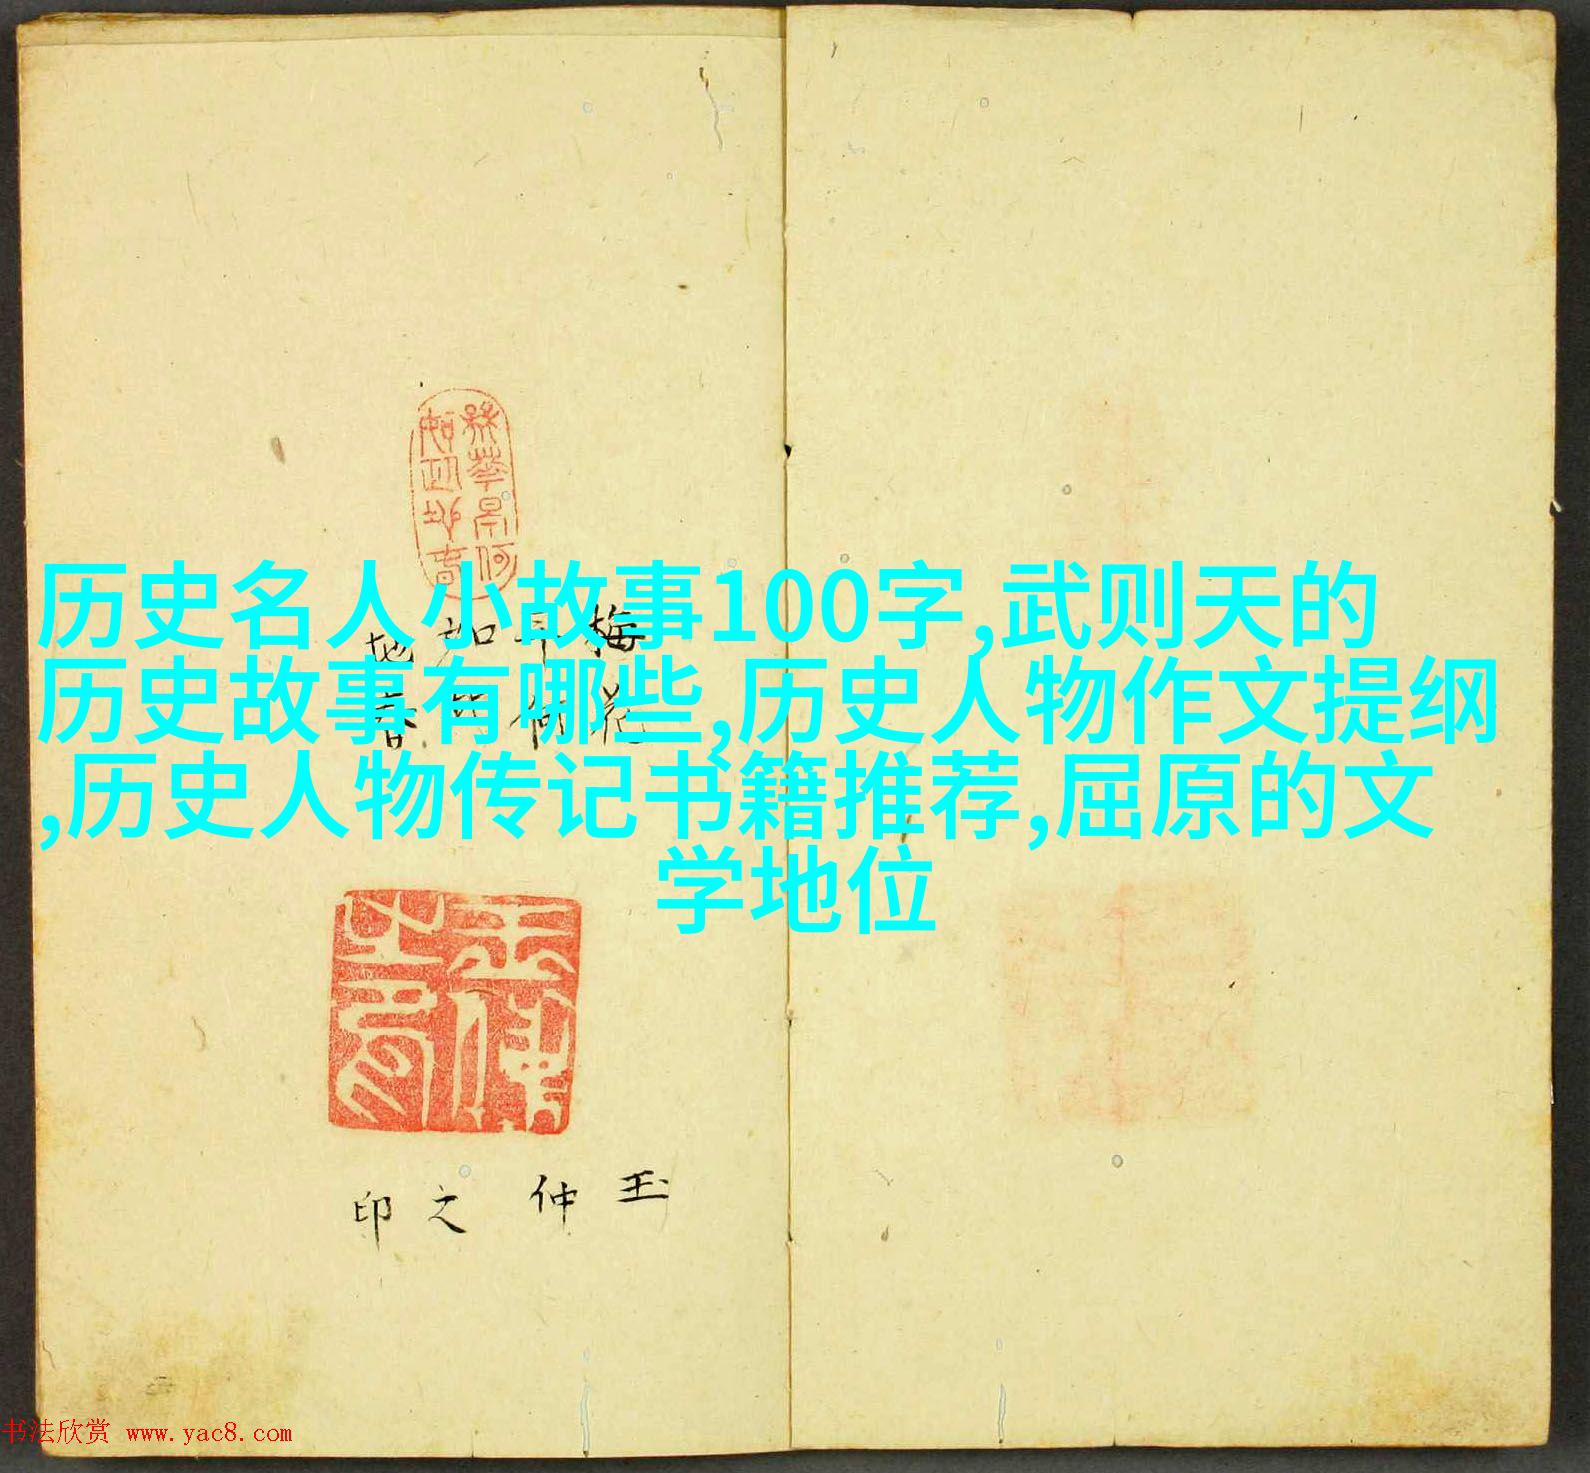 历史名人小故事100字,武则天的
历史故事有哪些,历史人物作文提纲
,历史人物传记书籍推荐,屈原的文
学地位
玉仲之印
书法欣赏 www.yac8.com